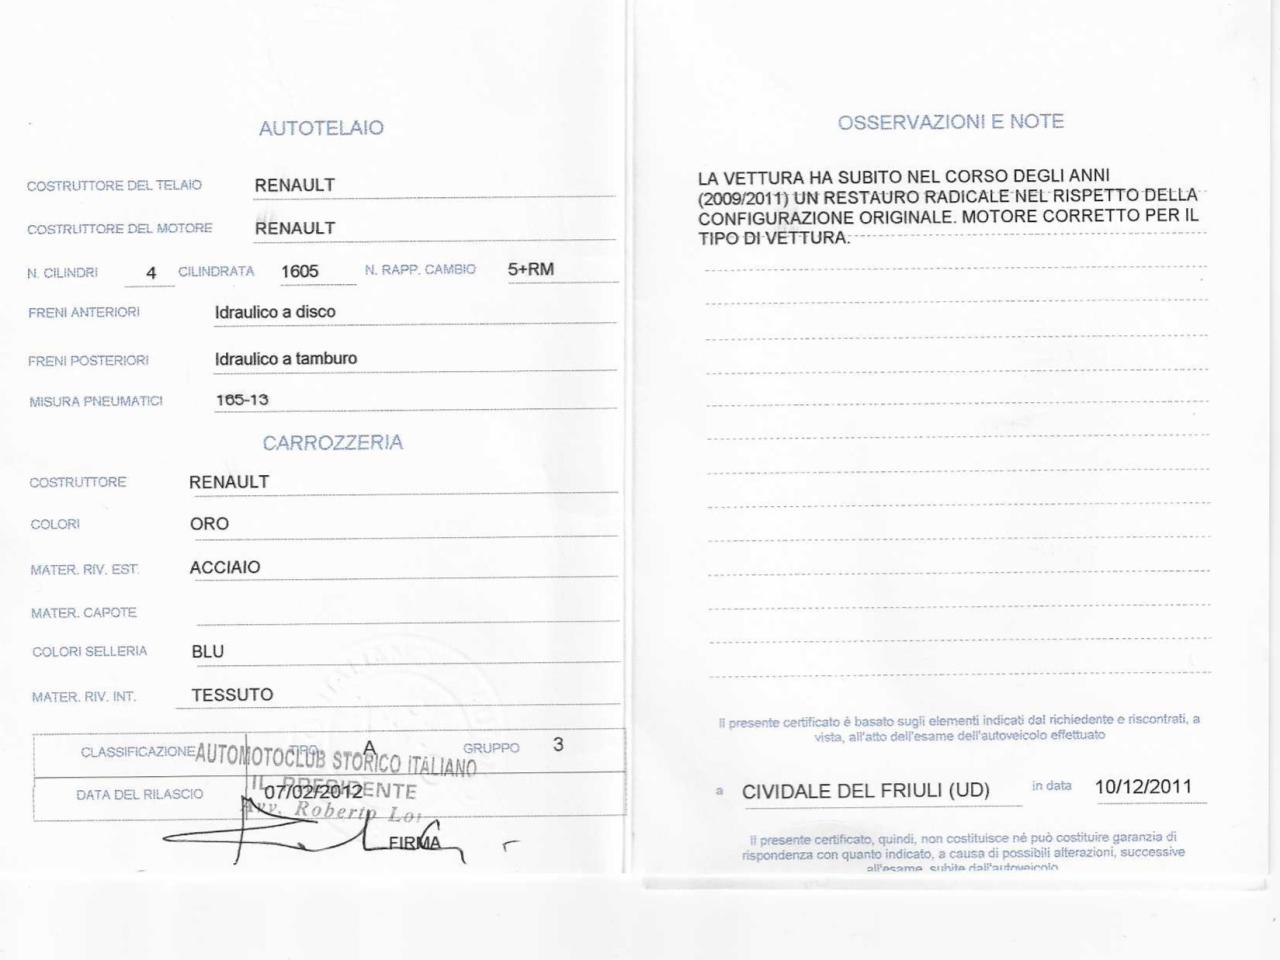 AUTOTELAIO
COSTRUTTORE DEL TELAIO RENAULT
COSTRUTTORE DEL MOTORE RENAULT
N. CILINDRI 4 CILINDRATA 1605 N. RAPP. CAMBIO 5+RM
FRENI ANTERIORI Idraulico a disco
FRENI POSTERIORI Idraulico a tamburo
MISURA PNEUMATICI 165-13
CARROZZERIA
COSTRUTTORE RENAULT
COLORI ORO
MATER. RIV. EST. ACCIAIO
MATER. CAPOTE
COLORI SELLERIA BLU
MATER. RIV. INT. TESSUTO
CLASSIFICAZIONE TIPO A GRUPPO 3
AUTOMOTOCLUB STORICO ITALIANO
IL PRESIDENTE
DATA DEL RILASCIO 07/02/2012
Avv. Roberto
FIRMA
OSSERVAZIONI E NOTE
LA VETTURA HA SUBITO NEL CORSO DEGLI ANNI
(2009/2011) UN RESTAURO RADICALE NEL RISPETTO DELLA
CONFIGURAZIONE ORIGINALE. MOTORE CORRETTO PER IL
TIPO DI VETTURA.
Il presente certificato è basato sugli elementi indicati dal richiedente e riscontrati, a
vista, all'atto dell'esame dell'autoveicolo effettuato
a CIVIDALE DEL FRIULI (UD) in data 10/12/2011
Il presente certificato, quindi, non costituisce né può costituire garanzia di
rispondenza con quanto indicato, a causa di possibili alterazioni, successive
all'esame, subite dall'autoveicolo